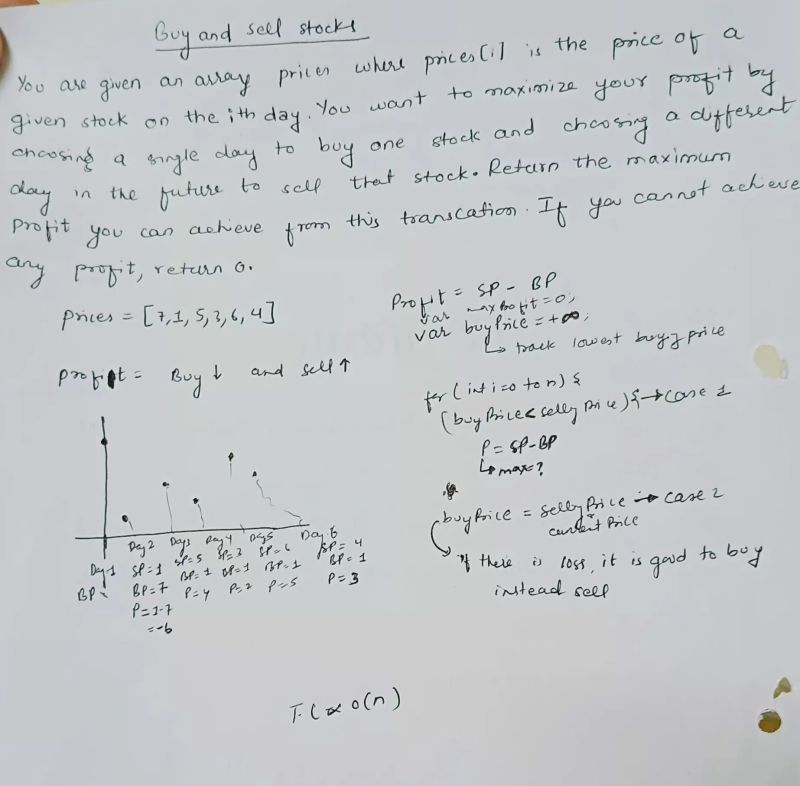 Buy and sell stocks
You are given an array prices where prices[i] is the price of a
given stock on the ith day. You want to maximize your profit by
choosing a single day to buy one stock and choosing a different
day in the future to sell that stock. Return the maximum
profit you can achieve from this transcation. If you cannot achieve
any profit, return 0.
prices = [7,1,5,3,6,4]
profit = Buy ↓ and sell ↑
Day 1 Day 2 Day 3 Day 4 Day 5 Day 6
SP=1 SP=5 SP=3 SP=6 SP=4
BP= BP=7 BP=1 BP=1 BP=1 BP=1
P=1-7 P=4 P=2 P=5 P=3
=-6
Profit = SP - BP
var maxProfit=0;
var buyPrice=+∞;
↳ track lowest buyg price
for (int i=0 to n) {
(buyPrice< sellg Price) { → case 1
P= SP-BP
↳ max?
buyPrice = sellg Price → case 2
current Price
if there is loss, it is good to buy
instead sell
T.C ∝ O(n)